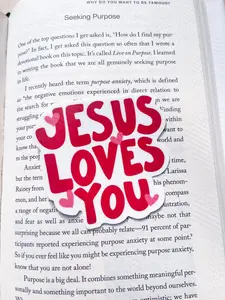 WHY DO YOU WANT TO BE FAMOUS?
Seeking Purpose
One of the top questions I get asked is, "How do I find my pur-
pose?" In fact, I get asked this question so often that I wrote a
devotional book on this topic. It's called Live on Purpose. I learned
in writing the book that we are all genuinely seeking purpose
in life.
I recently heard the term purpose anxiety, which is defined
as "the negative emotions experienced in direct relation to
the search for
we are
struggling
finding
your
could
JESUS
LOVES
YOU
but the term
Larissa
Rainey from
phenom-
enon. She
expans
a range of negat
and fear as well as anxie
not be that
surprising because we all can probably relate—91 percent of par-
ticipants reported experiencing purpose anxiety at some point.
So if you ever feel like you might be experiencing purpose anxiety,
know that you are not alone!
Purpose is a big deal. It combines something meaningful per-
sonally and something important to the world beyond ourselves.
optimistic; we have